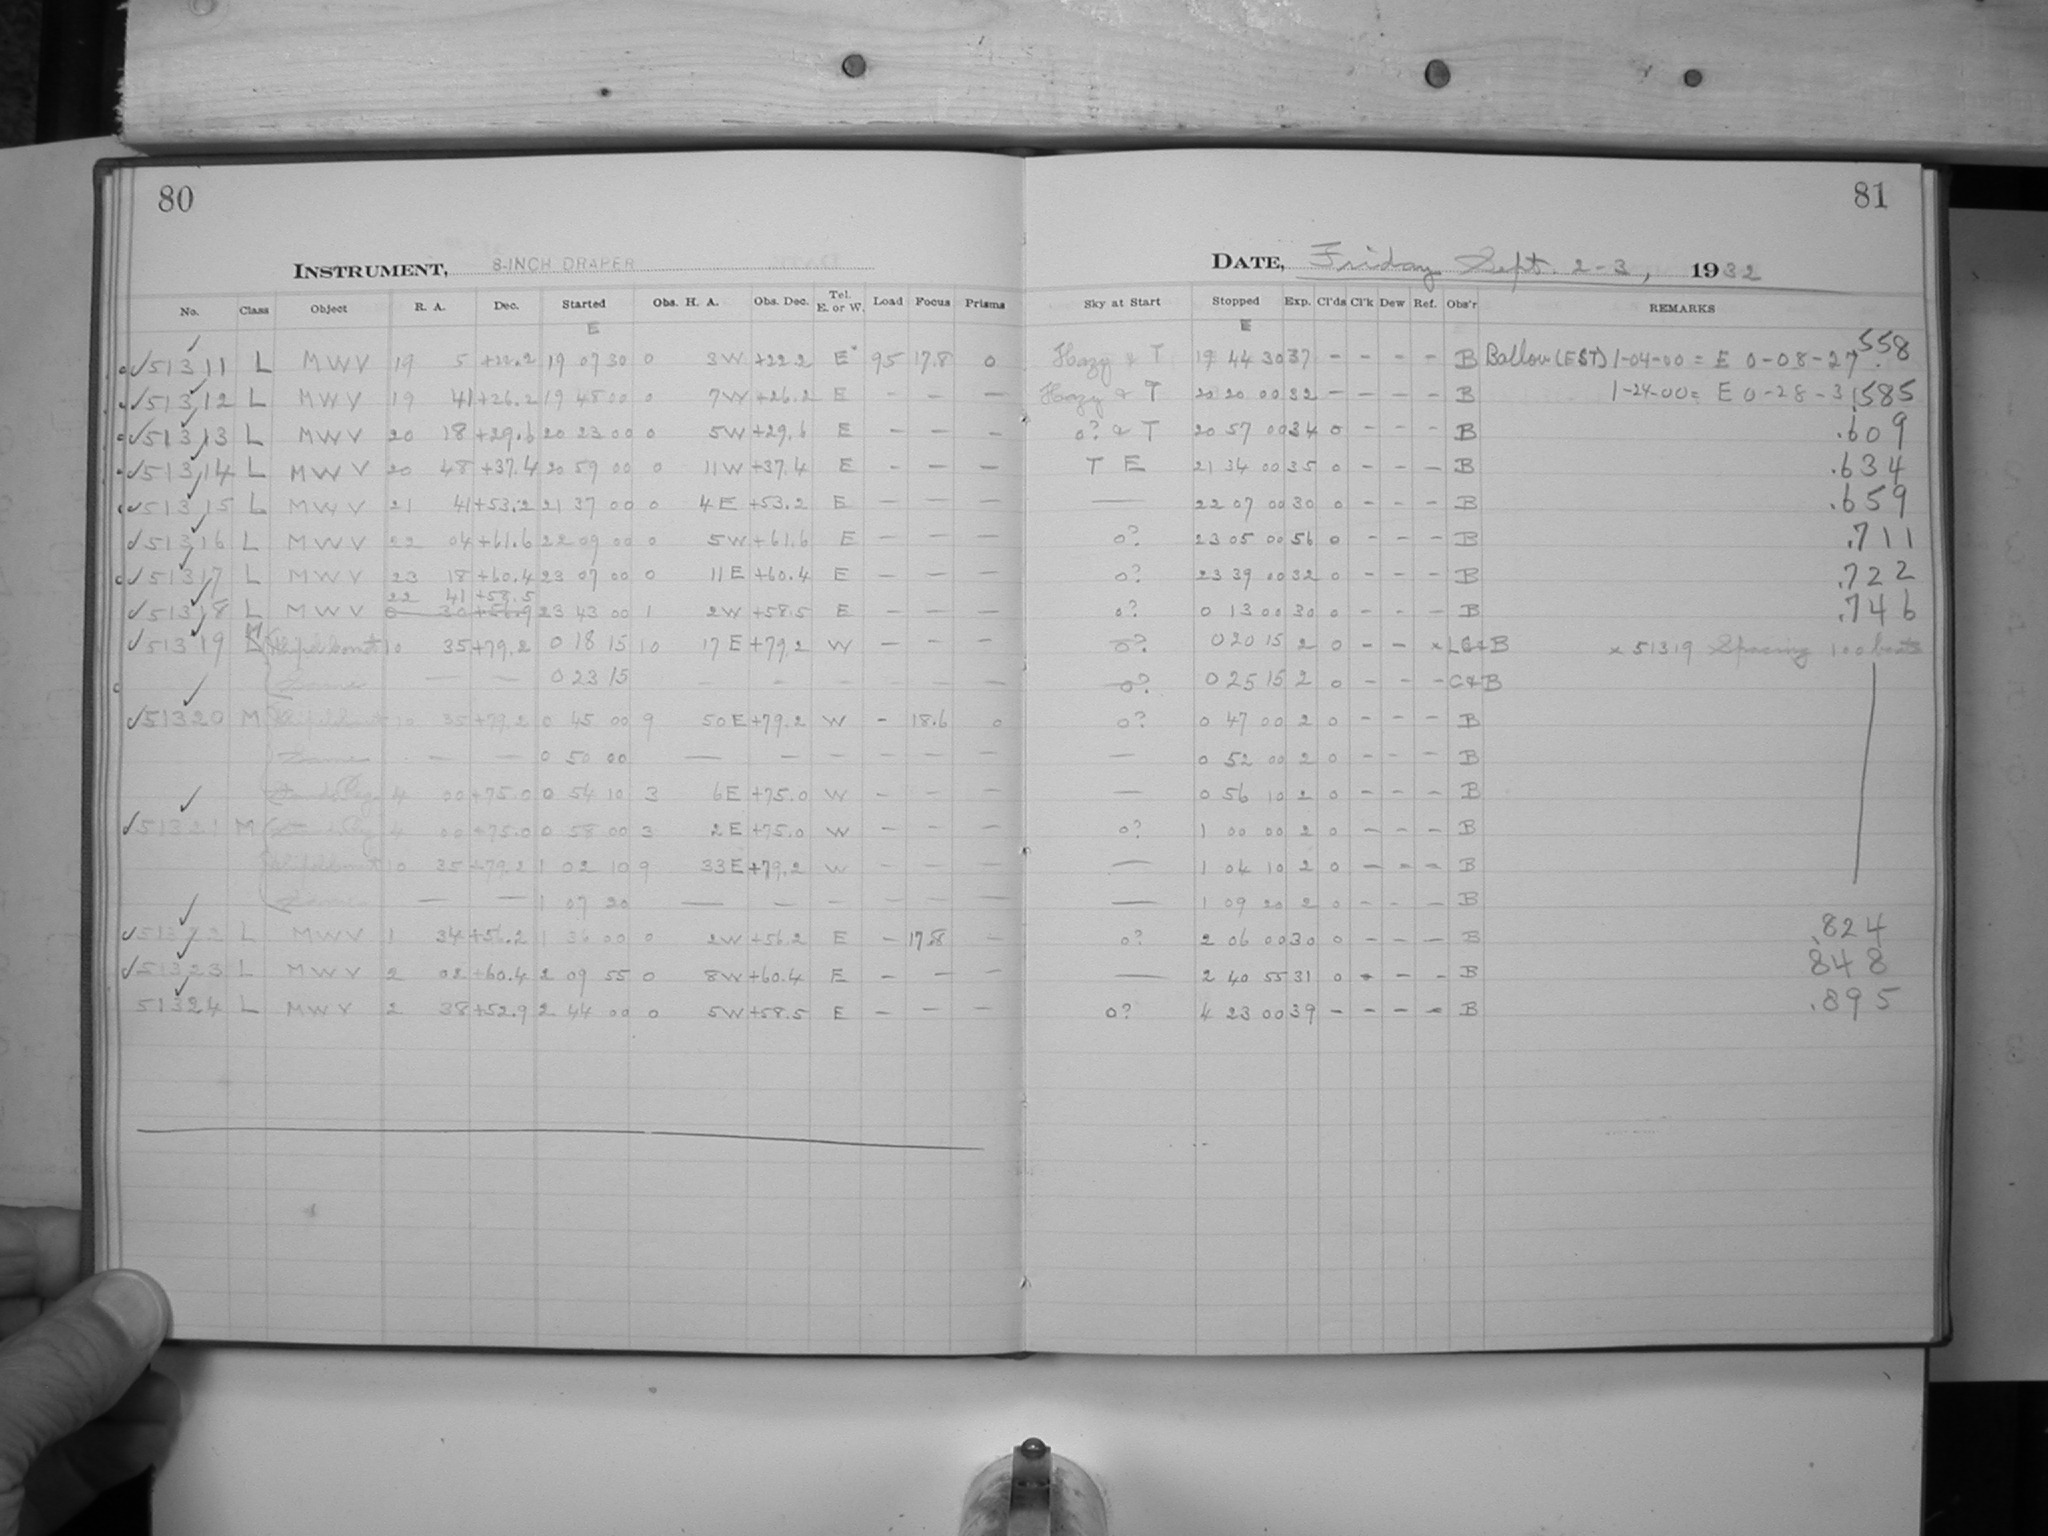 80
81
INSTRUMENT, 8-INCH DRAPER
DATE, Friday Sept. 2-3, 1932
No. Class Object R. A. Dec. Started Obs. H. A. Obs. Dec. Tel. E. or W. Load Focus Prisms Sky at Start Stopped Exp. Cl'ds Cl'k Dew Ref. Obs'r REMARKS
E E
✓51311 L MWV 19 5 +22.2 19 07 30 0 3W +22.2 E 95 17.8 0 Hazy & T 19 44 30 37 – – – – B Ballou (EST) 1-04-00 = E 0-08-27 .558
✓51312 L MWV 19 41 +26.2 19 48 00 0 7W +26.2 E – – – Hazy & T 20 20 00 32 – – – – B 1-24-00 = E 0-28-31 .585
✓51313 L MWV 20 18 +29.6 20 23 00 0 5W +29.6 E – – – o? & T 20 57 00 34 0 – – – B .609
✓51314 L MWV 20 48 +37.4 20 59 00 0 11W +37.4 E – – – T E 21 34 00 35 0 – – – B .634
✓51315 L MWV 21 41 +53.2 21 37 00 0 4E +53.2 E – – – — 22 07 00 30 0 – – – B .659
✓51316 L MWV 22 04 +61.6 22 09 00 0 5W +61.6 E – – – o? 23 05 00 56 0 – – – B .711
✓51317 L MWV 23 18 +60.4 23 07 00 0 11E +60.4 E – – – o? 23 39 00 32 0 – – – B .722
22 41 +58.5
✓51318 L MWV 0 30 +56.9 23 43 00 1 2W +58.5 E – – – o? 0 13 00 30 0 – – – B .746
✓51319 M 10 35 +79.2 0 18 15 10 17E +79.2 W – – – o? 0 20 15 2 0 – – x LC&B x 51319 Spacing 100 beats
Same — — 0 23 15 – – – – – – – o? 0 25 15 2 0 – – – C&B
✓51320 M 10 35 +79.2 0 45 00 9 50E +79.2 W – 18.6 0 o? 0 47 00 2 0 – – – B
Same — — 0 50 00 — – – – – – — 0 52 00 2 0 – – – B
4 00 +75.0 0 54 10 3 6E +75.0 W – – – — 0 56 10 2 0 – – – B
✓51321 M 4 00 +75.0 0 58 00 3 2E +75.0 W – – – o? 1 00 00 2 0 – – – B
10 35 +79.2 1 02 10 9 33E +79.2 W – – – — 1 04 10 2 0 – – – B
Same — — 1 07 20 — – – – – – — 1 09 20 2 0 – – – B
✓51322 L MWV 1 34 +56.2 1 36 00 0 2W +56.2 E – 17.8 – o? 2 06 00 30 0 – – – B .824
✓51323 L MWV 2 02 +60.4 2 09 55 0 8W +60.4 E – – – — 2 40 55 31 0 – – – B .848
51324 L MWV 2 38 +52.9 2 44 00 0 5W +58.5 E – – – o? 4 23 00 39 – – – – B .895